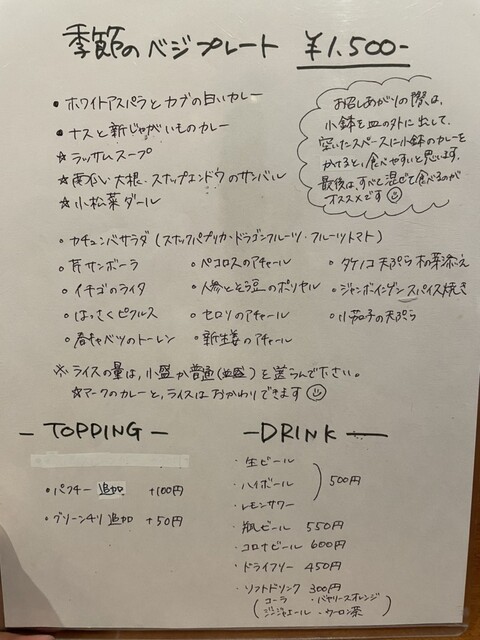 季節のベジプレート ¥1,500-
・ホワイトアスパラとカブの白いカレー
・ナスと新じゃがいものカレー
☆ラッサムスープ
☆南瓜・大根・スナップエンドウのサンバル
☆小松菜ダール
お召しあがりの際は、
小鉢を皿の外に出して、
空いたスペースに小鉢のカレーを
かけると、食べやすいと思います。
最後は、すべて混ぜて食べるのが
オススメです☺
・カチュンバサラダ(スナックパプリカ・ドラゴンフルーツ・フルーツトマト)
・芹サンボーラ
・イチゴのライタ
・はっさくピクルス
・春キャベツのトーレン
・ペコロスのアチャール
・人参とそら豆のポリヤル
・セロリのアチャール
・新生姜のアチャール
・タケノコ天ぷら 木の芽添え
・ジャンボインゲン スパイス焼き
・小茄子の天ぷら
※ライスの量は、小盛か普通(並盛)を選んで下さい。
☆マークのカレーと、ライスはおかわりできます☺
- TOPPING -
・パクチー 追加 +100円
・グリーンチリ 追加 +50円
- DRINK -
・生ビール
・ハイボール
・レモンサワー
500円
・瓶ビール 550円
・コロナビール 600円
・ドライフリー 450円
・ソフトドリンク 300円
(コーラ ・バヤリースオレンジ
ジンジャエール ・ウーロン茶)